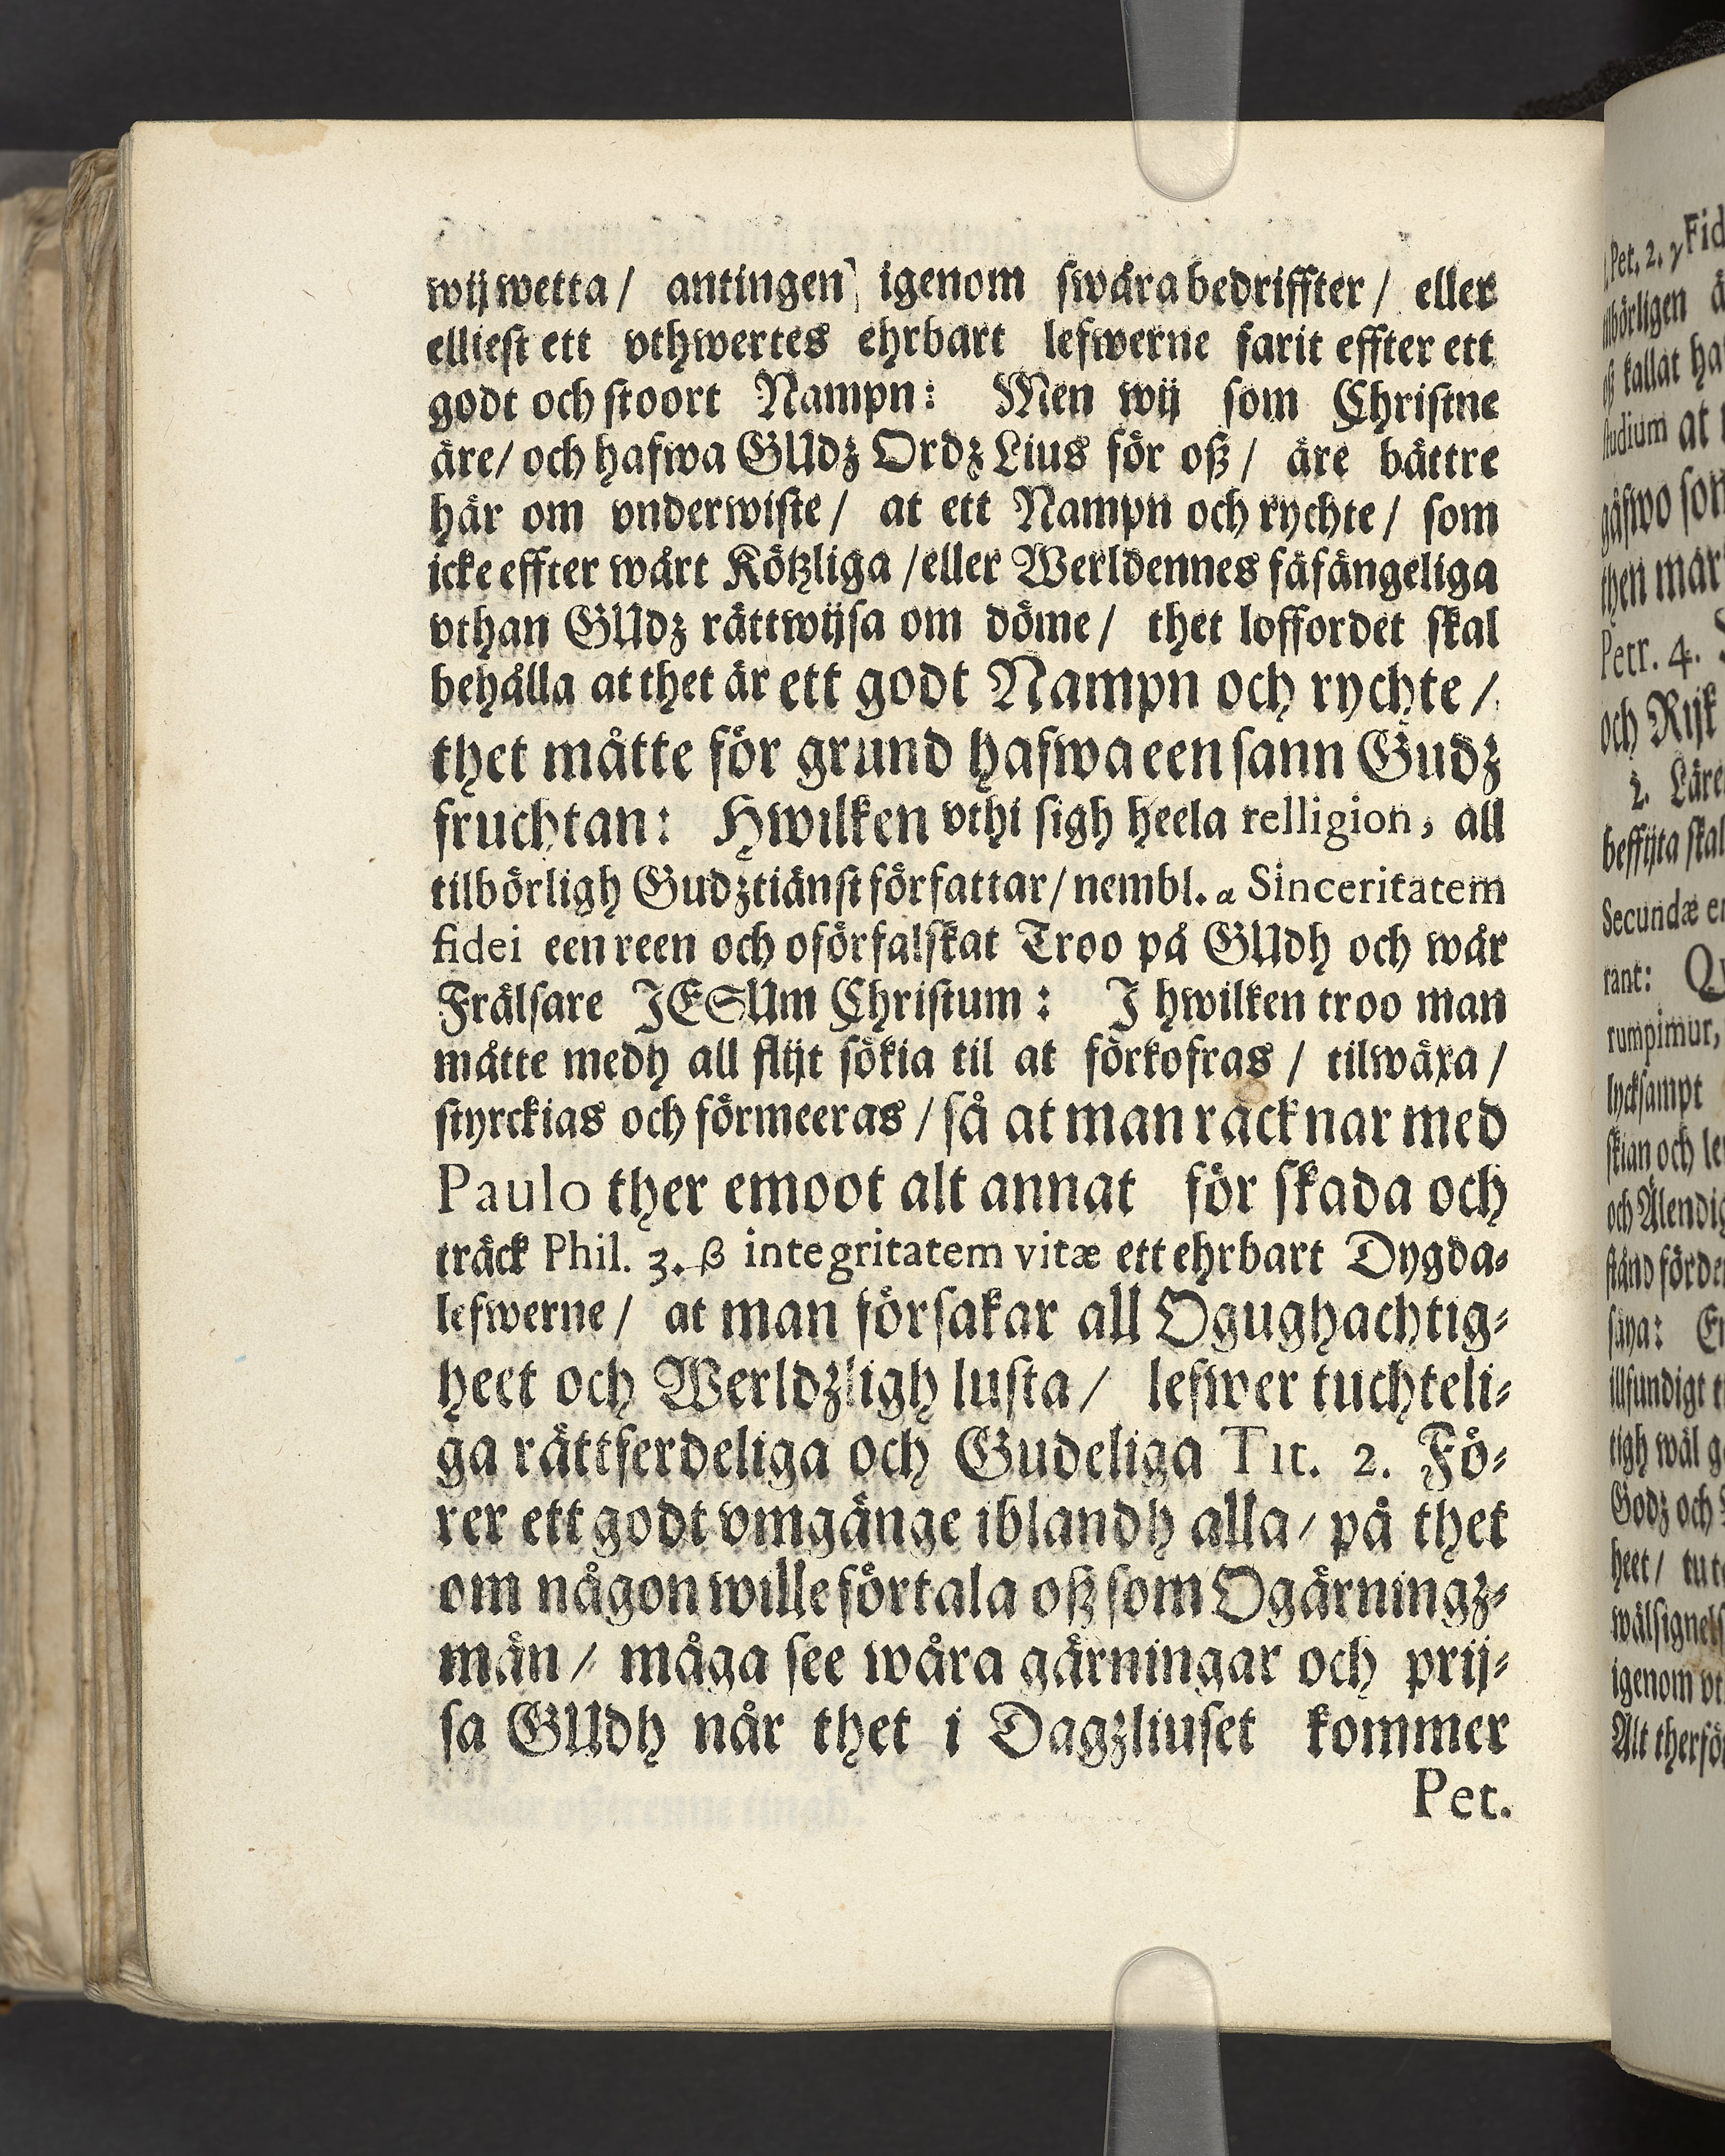 wij wetta / antingen igenom swåra bedriffter / eller
elliest ett vthwertes ehrbart lefwerne farit effter ett
godt och stoort Nampn: Men wij som Christne
äre / och hafwa GUdz Ordz Lius för oß / äre bättre
här om vnderwiste / at ett Nampn och rychte / som
icke effter wårt Kötzliga / eller Werldennes fåfängeliga
vthan GUdz rättwijsa om döme / thet loffordet skal
behålla at thet är ett godt Nampn och rychte /
thet måtte för grund hafwa een sann Gudz
fruchtan: Hwilken vthi sigh heela relligion, all
tilbörligh Gudztiänst författar / nembl. α Sinceritatem
fidei een reen och oförfalskat Troo på GUdh och wår
Frälsare JESUm Christum: J hwilken troo man
måtte medh all flijt sökia til at förkofras / tilwäxa /
styrckias och förmeeras / så at man räcknar med
Paulo ther emoot alt annat för skada och
träck Phil. 3. β integritatem vitæ ett ehrbart Dygda⸗
lefwerne / at man försakar all Ogughachtig⸗
heet och Werldzligh lusta / lefwer tuchteli⸗
ga rättferdeliga och Gudeliga Tit. 2. Fö⸗
rer ett godt vmgänge iblandh alla / på thet
om någon wille förtala oß som Ogärningz⸗
män / måga see wåra gärningar och prij⸗
sa GUdh når thet i Dagzliuset kommer
Pet.
Pet. 2. γ Fid
kallat ha
studium at
then
Petr. 4.
och Rijk
2. Läre
Secundæ
rant: Q
rumpimur,
och
Godz och
heet /
igenom
Alt therfö